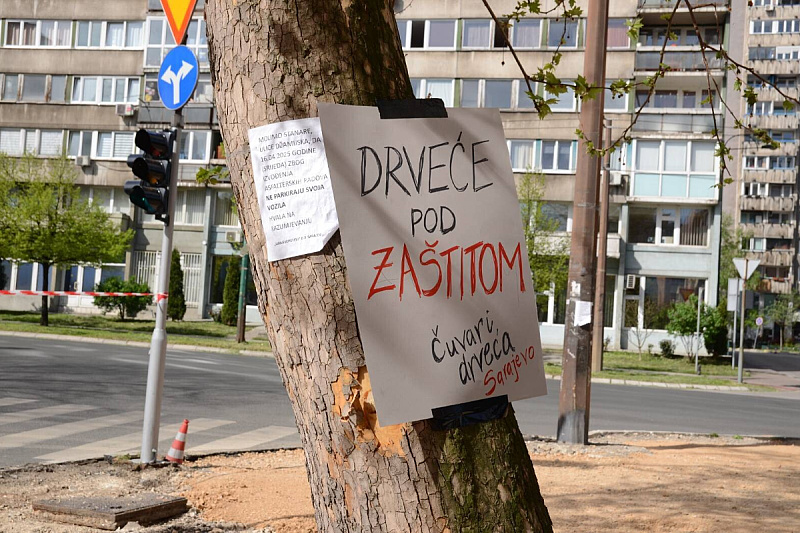 MOLIMO STANARE
ULICE DŽAMIJSKA, DA
16.04.2025 GODINE
(SRIJEDA) ZBOG
IZVOĐENJA
ASFALTERSKIH RADOVA
NE PARKIRAJU SVOJA
VOZILA
HVALA NA
RAZUMIJEVANJU
DRVEĆE
POD
ZAŠTITOM
čuvari
drveća
Sarajevo